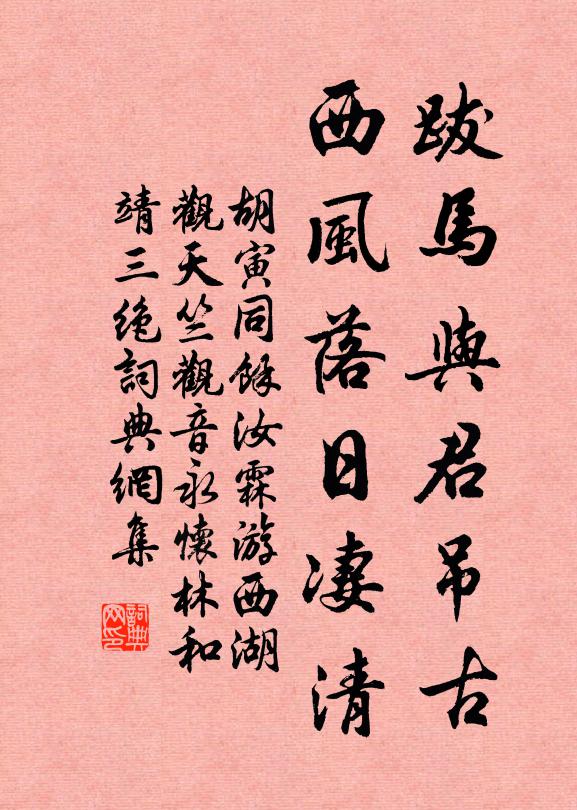 跋馬與君吊古
西風落日凄清
胡寅同餘汝霖游西湖
觀天竺觀音永懷林和
靖三絕詞典網集
詞典网印